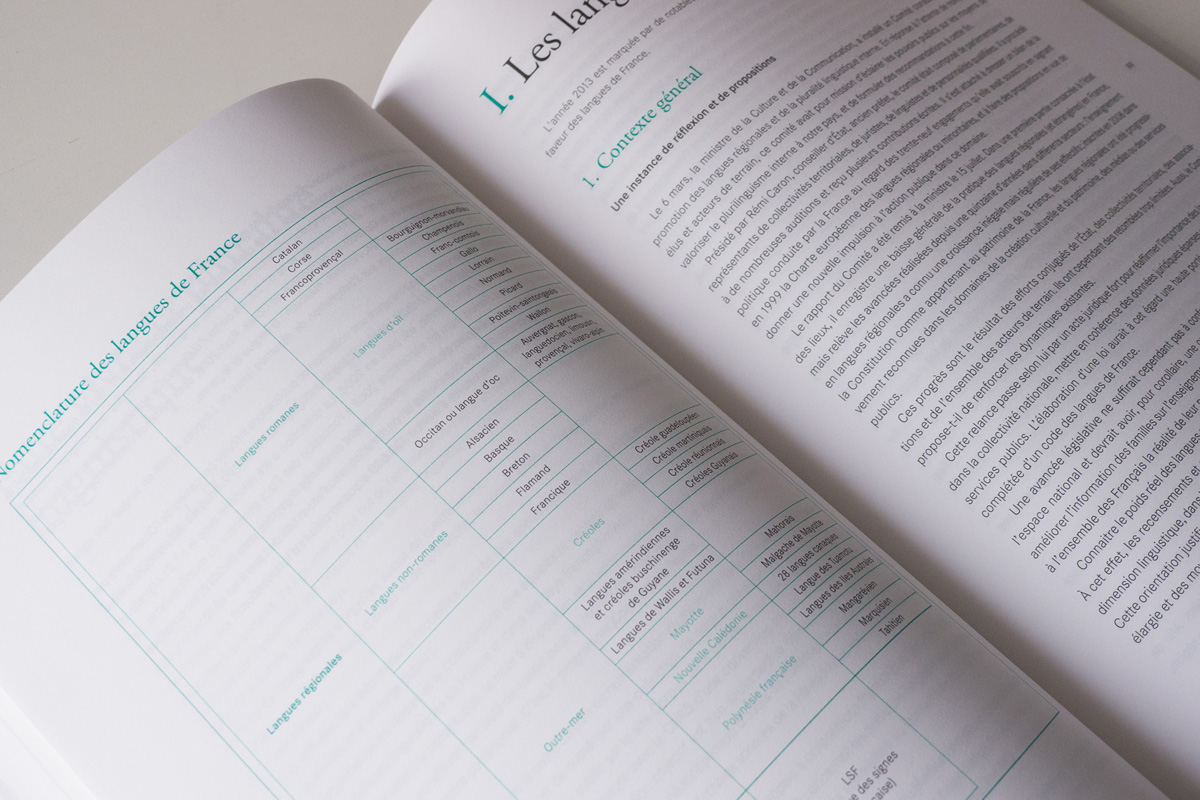 Nomenclature des langues de France
Langues régionales
Langues romanes
Catalan
Corse
Francoprovençal
Langues d'oïl
Bourguignon-morvandiau
Champenois
Franc-comtois
Gallo
Lorrain
Normand
Picard
Poitevin-saintongeais
Wallon
Occitan ou langue d'oc
Auvergnat, gascon,
languedocien, limousin,
provençal, vivaro-alpin
Langues non-romanes
Alsacien
Basque
Breton
Flamand
Francique
Outre-mer
Créoles
Créole guadeloupéen
Créole martiniquais
Créole réunionnais
Créoles Guyanais
Langues amérindiennes
et créoles buschinenge
de Guyane
Langues de Wallis et Futuna
Mayotte
Mahorais
Malgache de Mayotte
Nouvelle Calédonie
28 langues canaques
Polynésie française
Langue des Tuamotu
Langues des Iles Australes
Mangarévien
Marquisien
Tahitien
LSF
des signes
I. Les
L'année 2013 est marquée par de notables
faveur des langues de France.
1. Contexte général
Une instance de réflexion et de propositions
Le 6 mars, la ministre de la Culture et de la Communication, a installé un Comité
promotion des langues régionales et de la pluralité linguistique interne.
élus et acteurs de terrain, ce comité avait pour mission d'éclairer les pouvoirs publics sur les moyens de
valoriser le plurilinguisme interne à notre pays, et de formuler des recommandations à cette fin.
Présidé par Rémi Caron, conseiller d'État, ancien préfet, le comité était composé de parlementaires, de
représentants de collectivités territoriales, de juristes, de linguistes et de personnalités qualifiées. Il a procédé
à de nombreuses auditions et reçu plusieurs contributions écrites. Il s'est attaché à dresser un bilan de la
politique conduite par la France au regard des trente-neuf engagements qu'elle avait souscrits en signant
en 1999 la Charte européenne des langues régionales ou minoritaires, et à faire des propositions en vue de
donner une nouvelle impulsion à l'action publique dans ce domaine.
Le rapport du Comité a été remis à la ministre le 15 juillet. Dans une première partie consacrée à l'état
des lieux, il enregistre une baisse générale de la pratique des langues régionales
mais relève les avancées réalisées depuis une quinzaine d'années dans différents
en langues régionales a connu une croissance inégale mais régulière de ses effectifs;
la Constitution comme appartenant au patrimoine de la France, les langues régionales ont été
vement reconnues dans les domaines de la création culturelle et du patrimoine, des médias ou des services
publics.
Ces progrès sont le résultat des efforts conjugués de l'État, des collectivités territoriales, des
tions et de l'ensemble des acteurs de terrain. Ils ont cependant des
propose-t-il de renforcer les dynamiques existantes.
Cette relance passe selon lui par un acte juridique fort pour réaffirmer l'importance
dans la collectivité nationale, mettre en cohérence des données juridiques
services publics. L'élaboration d'une loi aurait à cet égard une
complétée d'un code des langues de France.
Une avancée législative ne suffirait cependant pas à
l'espace national et devrait avoir, pour corollaire, une
améliorer l'information des familles sur
à l'ensemble des Français la réalité de
Connaître le poids réel des
À cet effet, les recensements et
dimension linguistique,
Cette orientation
élargie et des